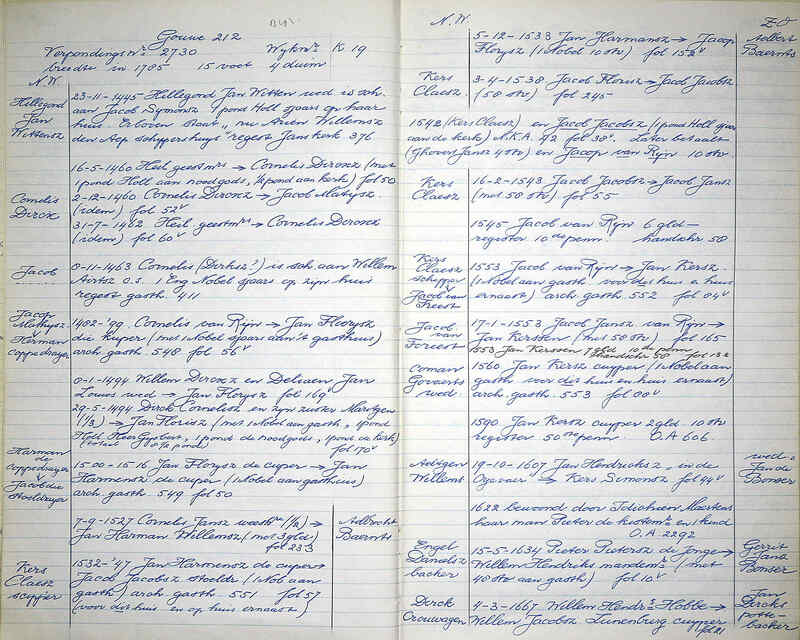 Gouwe 212
Verpondings No 2730 Wyk no K 19
breedte in 1785 15 voet 4 duim
N.W.
Hillegond
Jan
Wittensz
23-11-1445 Hillegond Jan Witten wed is sch.
aan Jacob Symonsz 1 pond Holl sjaars op haar
huis. Erboven staat "nu Arien Willemsz
den Aep schipperhuys" regest Jans kerk 376
16-5-1460 Heil geestmrs → Cornelis Dircxz (met
1 pond Holl aan noodgods, ½ pond aan kerk) fol 50
Cornelis
Dircxz
2-12-1460 Cornelis Dircxz → Jacob Matysz
(idem) fol 52v
31-7-1462 Heil geestmrs → Cornelis Dircxz
(idem) fol 60v
Jacob
0-11-1463 Cornelis (Dirksz?) is sch. aan Willem
Airtsz O.S. 1 Eng Nobel sjaars op zijn huis
regest gasth. 411
Jacop
Mathysz
Herman
coppedrayer
1482-'99. Cornelis van Rijn → Jan Florysz
die kuper (met 1 Nobel sjaars aan 't gasthuis)
arch gasth 548 fol 56v
0-1-1494 Willem Dircxz en Deliaen Jan
Louws wed → Jan Florysz fol 169
29-5-1494 Dirck Cornelisz en zyn zuster Martgen
(1/3) → Jan Florisz (met 1 Nobel aan gasth, 1 pond
Holl Heer Gysbert, 1 pond de noodgods, 1 pond de kerk)
fol 170v
Harman
de
coppedrayer
Jacob die
stoeldrayer
1500-1516 Jan Florysz de cuper → Jan
Harmensz de cuper (1 Nobel aan gasthuis)
arch gasth 549 fol 50
7-9-1527 Cornelis Jansz (½) →
Jan Harman Willemsz (met 3 gld)
fol 233
Aelbrecht
Baernts
Kers
Claesz
scipper
1532-'47 Jan Harmensz de cuper →
Jacob Jacobsz stoeldr (1 Nob aan
gasth) arch gasth 551 fol 57
(voor dit huis en op huis ernaast)
N.W. Z.O
5-12-1533 Jan Harmansz → Jacop
Florysz (1 Nobel 10 stv) fol 152v
Aelbert
Baernts
Kers
Claesz.
3-4-1538 Jacob Florisz → Jacob Jacobsz
(50 stv) fol 245
1542 (Kers Claesz) en Jacob Jacobsz (1 pond Holl sjaars
aan de kerk) N.K.A. 42 fol 38v. Later betaalt
(Ghovert Jansz 4 stv) en Jacop van Rijn 10 stv.
Kers
Claesz
16-2-1543 Jacob Jacobsz → Jacob Jansz
(met 50 stv) fol 55
1545 Jacob van Rijn 6 gld —
register 10de penn handschr 50
Kers
Claesz
schipper
Jacob van
Foreest
1553 Jacob van Rijn → Jan Kersz.
(1 Nobel aan gasth voor dit huis en huis
ernaast) arch gasth 552 fol 84v
Jacob
van
Foreest
17-1-1553 Jacob Jansz van Rijn →
Jan Kersten (met 50 stv) fol 165
1553 Jan Kerssen 7 gld 10de penn
handschr 50 fol 132
Coman
Govaerts
wed.
1560 Jan Kersz cuyper (1 Nobel aan
gasth voor dit huis en huis ernaast)
arch gasth. 553 fol 80v
1590 Jan Kersz cuyper 2 gld. 10 stv
register 50ste penn. O.A 606.
Aeltgen
Willems
19-10-1607 Jan Hendricksz "in de
Oyevaer" → Kers Simonsz fol 44v
wed.
Jan de
Bonser
1622 bewoond door Maertens
haar man Pieter de kostemr en 1 kind
O.A 2292
Engel
Danelsz
backer
15-5-1634 Pieter Pietersz de Jonge →
Willem Hendriks mandemr (met
40 stv aan gasth) fol 10v
Gerrit
Jansz
Bonser
Derck
Crouwagen
4-3-1667 Willem Hendrs Hobbe →
Willem Jacobsz Lunenburg cuyper fol 21
Jan
Dircks
potte-
backer